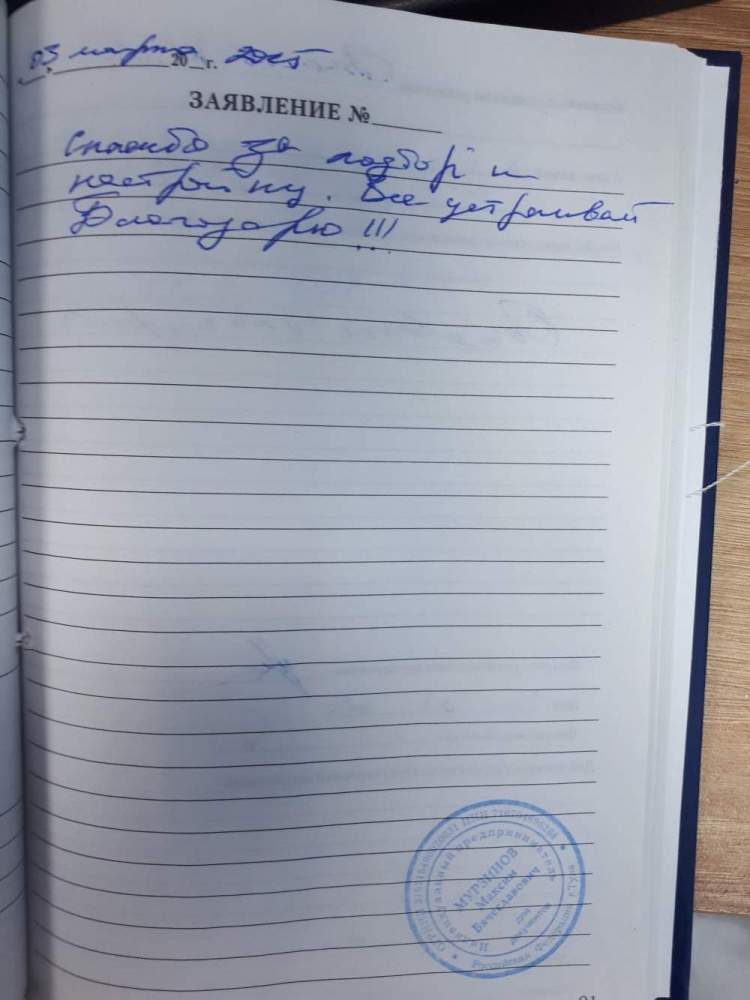 03 марта 20 г. 2025
ЗАЯВЛЕНИЕ №
Спасибо за подбор и
настройку. Все устраивает
Благодарю !!!
Индивидуальный предприниматель
МУРЗИНОВ
Максим
Вячеславович
для
документов
Российская Федерация